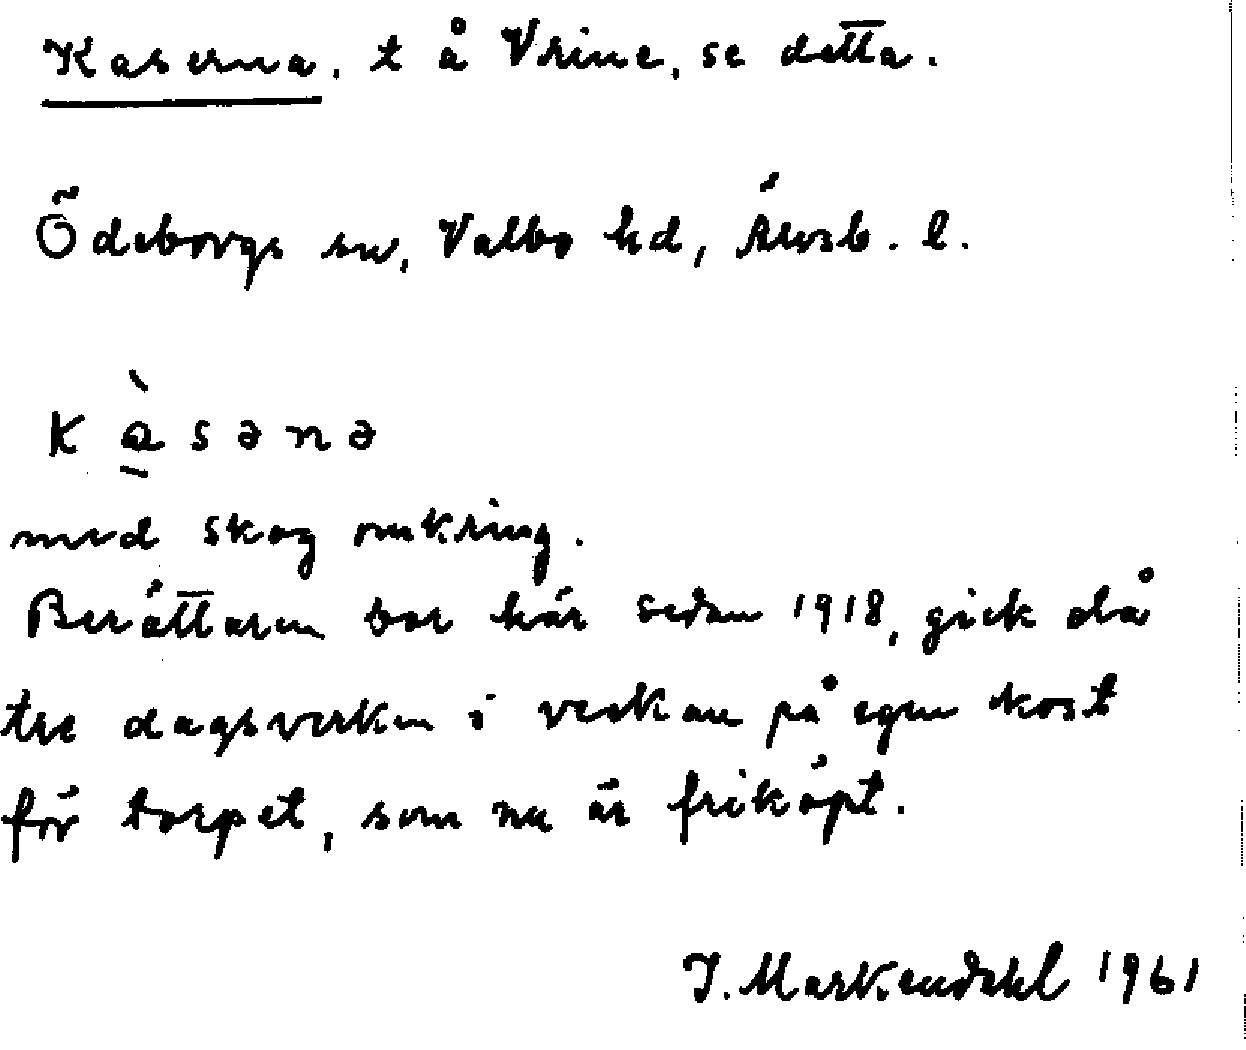 Kaserna, t å Vrine, se detta.
Ödeborgs sn, Valbo hd, Älvsb. l.
k à̱ s ə n ə
med skog omkring.
Berättaren bor här sedan 1918, gick då
tre dagsverken i veckan på egen kost
för torpet, som nu är friköpt.
J. Markendahl 1961